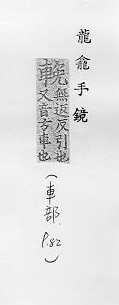 龍龕手鏡
輓無返反引也
又音万車也
(車部 P.82)